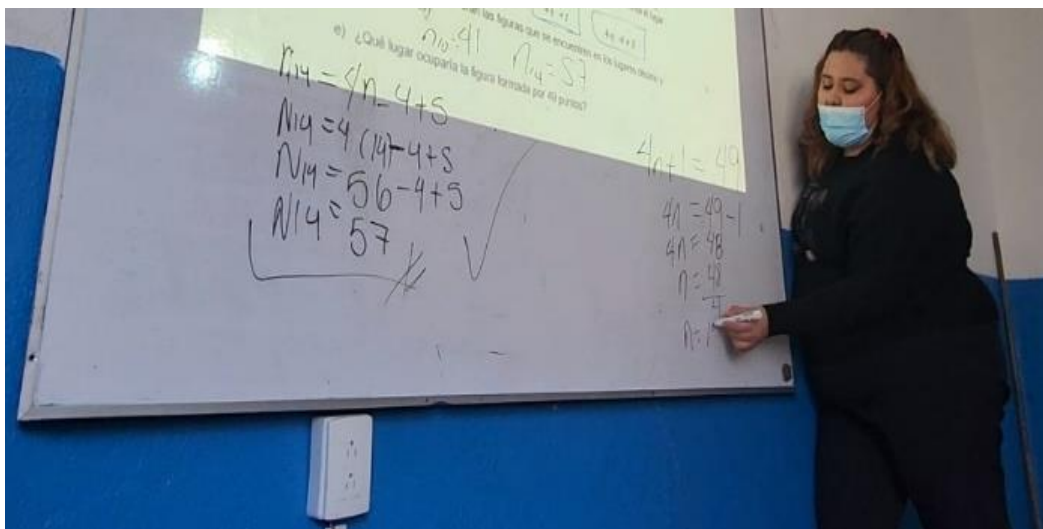 las figuras que se encuentren en los lugares
n10=41
n14=57
e) ¿Qué lugar ocuparía la figura formada por 49 puntos?
n14=4n-4+5
N14=4(14)-4+5
N14=56-4+5
N14=57
4n+1=49
4n=49-1
4n=48
n=48
4
n=1